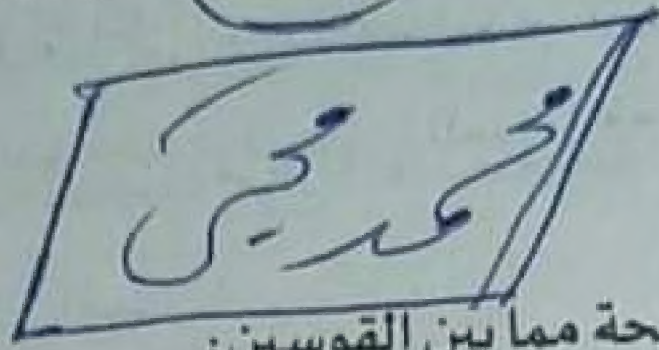 محمد محيي
حة مما بين القوسين: